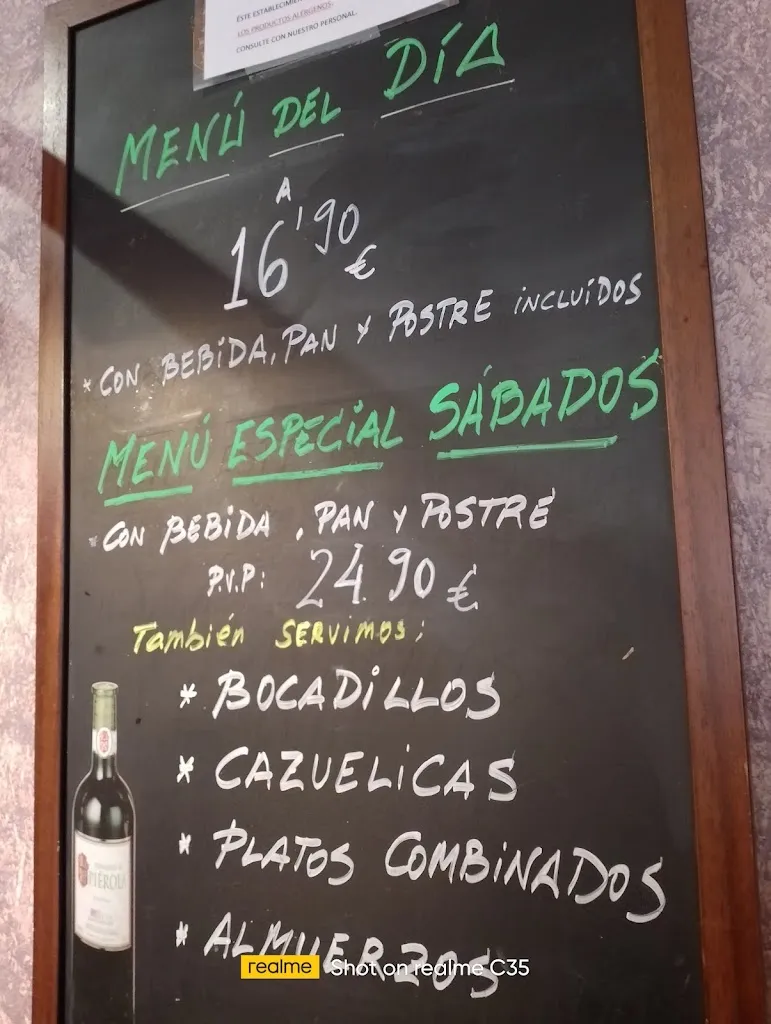 ESTE ESTABLECIMIEN
LOS PRODUCTOS ALERGENOS-
CONSULTE CON NUESTRO PERSONAL.
MENÚ DEL DÍA
A
16'90 €
* CON BEBIDA, PAN Y POSTRE INCLUÍDOS
MENÚ ESPECIAL SÁBADOS
* CON BEBIDA, PAN Y POSTRE
P.V.P: 24.90 €
También SERVIMOS:
* BOCADILLOS
* CAZUELICAS
* PLATOS COMBINADOS
* ALMUERZOS
PIÉROLA
realme Shot on realme C35